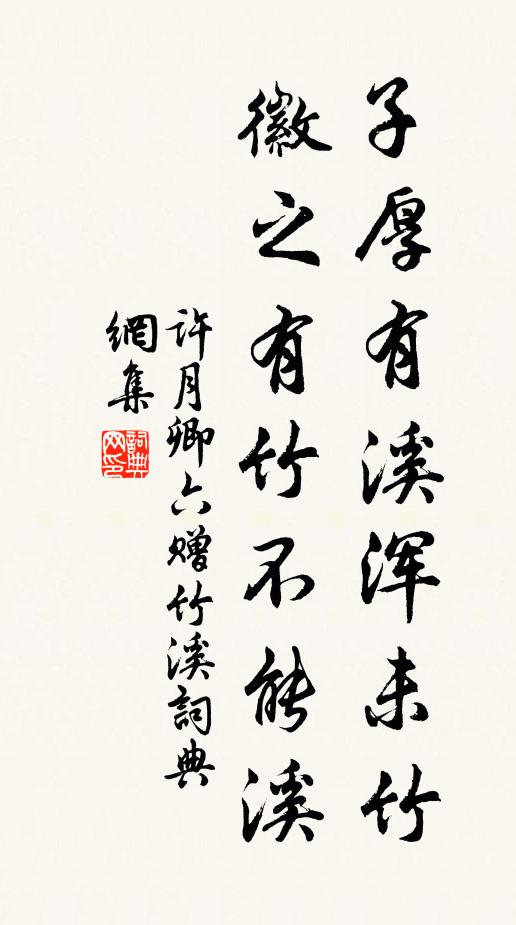 子厚有溪浑未竹
徽之有竹不能溪
許月卿六赠竹溪詞典
網集
詞典
网印